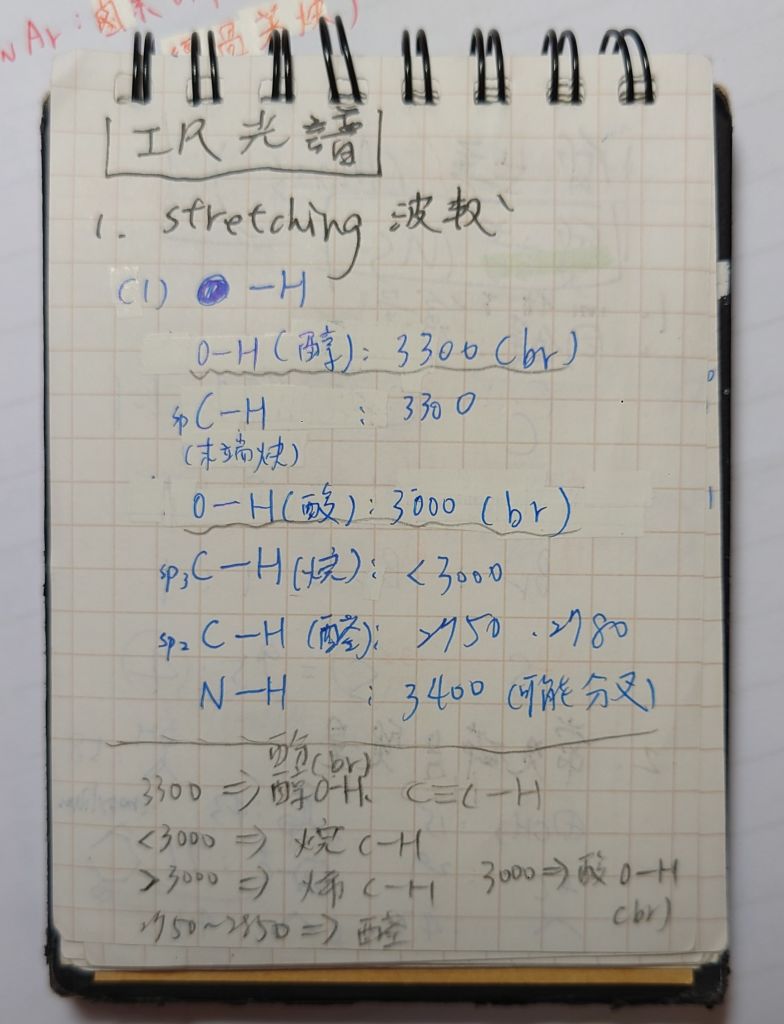 N Ar : 鹵素
IR 光譜
1. stretching 波數
(1) -H
O-H (醇): 3300 (br)
sp C-H : 3300
(末端炔)
O-H (酸): 3000 (br)
sp3 C-H (烷): <3000
sp2 C-H (醛): 2750 . 2780
N-H : 3400 (可能分叉)
3300 ⇒ 醇O-H、 C≡C-H
(br)
<3000 ⇒ 烷 C-H
>3000 ⇒ 烯 C-H 3000 ⇒ 酸 O-H
(br)
2750~2850 ⇒ 醛